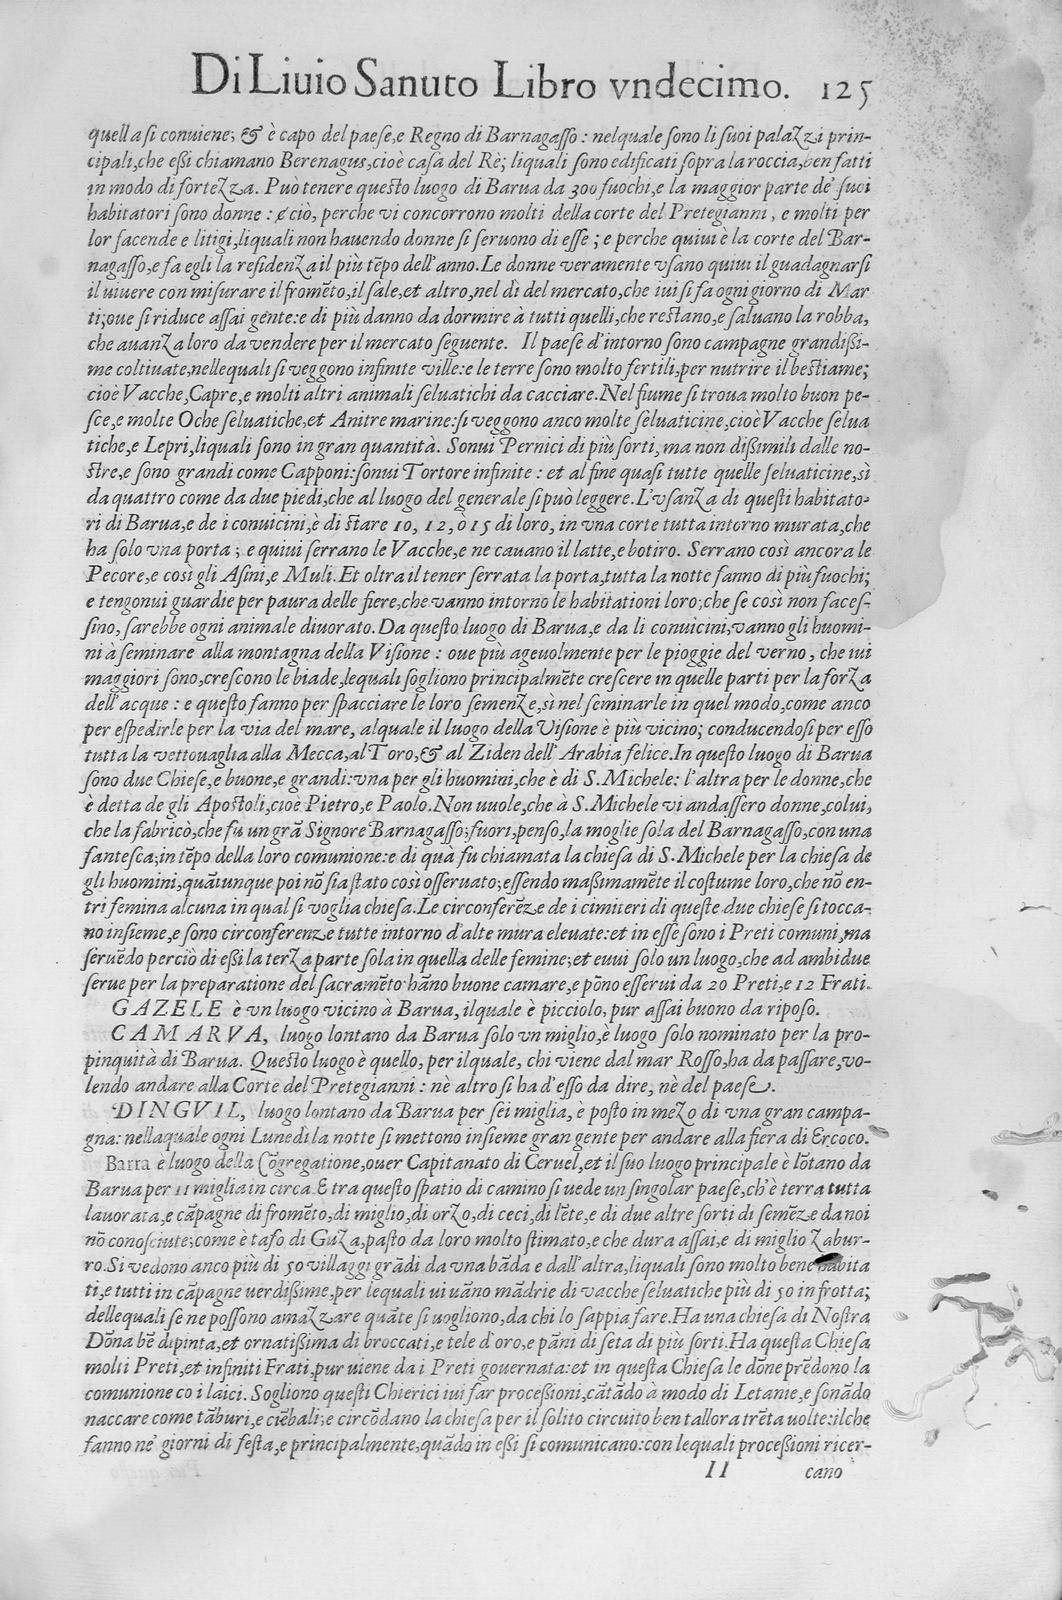 Di Liuio Sanuto Libro vndecimo. 125
quella si conuiene; & è capo del paese, e Regno di Barnagasso: nelquale sono li suoi palazzi prin-
cipali, che eßi chiamano Berenagus, cioè casa del Rè; liquali sono edificati sopra la roccia, ben fatti
in modo di fortezza. Può tenere questo luogo di Barua da 300 fuochi, e la maggior parte de' suoi
habitatori sono donne: e ciò, perche vi concorrono molti della corte del Pretegianni, e molti per
lor facende e litigi, liquali non hauendo donne si seruono di esse; e perche quiui è la corte del Bar-
nagasso, e fa egli la residenza il più tẽpo dell'anno. Le donne veramente vsano quiui il guadagnarsi
il uiuere con misurare il fromẽto, il sale, et altro, nel dì del mercato, che iui si fa ogni giorno di Mar
ti; oue si riduce assai gente: e di più danno da dormire à tutti quelli, che restano, e saluano la robba,
che auanza loro da vendere per il mercato seguente. Il paese d'intorno sono campagne grandißi-
me coltiuate, nellequali si veggono infinite ville: e le terre sono molto fertili, per nutrire il bestiame;
cioè Vacche, Capre, e molti altri animali seluatichi da cacciare. Nel fiume si troua molto buon pe-
sce, e molte Oche seluatiche, et Anitre marine: si veggono anco molte seluaticine, cioè Vacche selua
tiche, e Lepri, liquali sono in gran quantità. Sonui Pernici di più sorti, ma non dißimili dalle no-
stre, e sono grandi come Capponi: sonui Tortore infinite: et al fine quasi tutte quelle seluaticine, sì
da quattro come da due piedi, che al luogo del generale si può leggere. L'vsanza di questi habitato-
ri di Barua, e de i conuicini, è di stare 10, 12, ò 15 di loro, in vna corte tutta intorno murata, che
ha solo vna porta; e quiui serrano le Vacche, e ne cauano il latte, e botiro. Serrano così ancora le
Pecore, e così gli Asini, e Muli. Et oltra il tener serrata la porta, tutta la notte fanno di più fuochi;
e tengonui guardie per paura delle fiere, che vanno intorno le habitationi loro; che se così non faces-
sino, sarebbe ogni animale diuorato. Da questo luogo di Barua, e da li conuicini, vanno gli huomi-
ni à seminare alla montagna della Visione: oue più ageuolmente per le pioggie del verno, che iui
maggiori sono, crescono le biade, lequali sogliono principalmẽte crescere in quelle parti per la forza
dell'acque: e questo fanno per spacciare le loro semenze, sì nel seminarle in quel modo, come anco
per espedirle per la via del mare, alquale il luogo della Visione è più vicino; conducendosi per esso
tutta la vettouaglia alla Mecca, al Toro, & al Ziden dell'Arabia felice. In questo luogo di Barua
sono due Chiese, e buone, e grandi: vna per gli huomini, che è di S. Michele: l'altra per le donne, che
è detta de gli Apostoli, cioè Pietro, e Paolo. Non uuole, che à S. Michele vi andassero donne, colui,
che la fabricò, che fu un grã Signore Barnagasso; fuori, penso, la moglie sola del Barnagasso, con una
fantesca; in tẽpo della loro comunione: e di quà fu chiamata la chiesa di S. Michele per la chiesa de
gli huomini, quãtunque poi nõ sia stato così osseruato; essendo maßimamẽte il costume loro, che nõ en-
tri femina alcuna in qual si voglia chiesa. Le circonferẽze de i cimiteri di queste due chiese si tocca-
no insieme, e sono circonferenze tutte intorno d'alte mura eleuate: et in esse sono i Preti comuni, ma
seruẽdo perciò di eßi la terza parte sola in quella delle femine; et euui solo un luogo, che ad ambidue
serue per la preparatione del sacramẽto hãno buone camare, e põno esserui da 20 Preti, e 12 Frati.
GAZELE è vn luogo vicino à Barua, ilquale è picciolo, pur assai buono da riposo.
CAMARVA, luogo lontano da Barua solo vn miglio, è luogo solo nominato per la pro-
pinquità di Barua. Questo luogo è quello, per ilquale, chi viene dal mar Rosso, ha da passare, vo-
lendo andare alla Corte del Pretegianni: nè altro si ha d'esso da dire, nè del paese.
DINGVIL, luogo lontano da Barua per sei miglia, è posto in mezo di vna gran campa-
gna: nellaquale ogni Lunedì la notte si mettono insieme gran gente per andare alla fiera di Ercoco.
Barra è luogo della Cõgregatione, ouer Capitanato di Ceruel, et il suo luogo principale è lõtano da
Barua per 11 miglia in circa. E tra questo spatio di camino si uede un singolar paese, ch'è terra tutta
lauorata, e cãpagne di fromẽto, di miglio, di orzo, di ceci, di lẽte, e di due altre sorti di semẽze da noi
nõ conosciute; come è tafo di Guza, pasto da loro molto stimato, e che dura assai, e di miglio zabur-
ro. Si vedono anco più di 50 villaggi grãdi da vna bãda e dall'altra, liquali sono molto bene habita
ti, e tutti in cãpagne uerdißime, per lequali ui uãno mãdrie di vacche seluatiche più di 50 in frotta;
dellequali se ne possono amazzare quãte si uogliono, da chi lo sappia fare. Ha una chiesa di Nostra
Dõna bẽ dipinta, et ornatißima di broccati, e tele d'oro, e pãni di seta di più sorti. Ha questa Chiesa
molti Preti, et infiniti Frati, pur uiene da i Preti gouernata: et in questa Chiesa le dõne prẽdono la
comunione co i laici. Sogliono questi Chierici iui far proceßioni, cãtãdo à modo di Letanie, e sonãdo
naccare come tãburi, e ciẽbali; e circõdano la chiesa per il solito circuito ben tallora trẽta uolte: ilche
fanno ne' giorni di festa, e principalmente, quãdo in eßi si comunicano: con lequali proceßioni ricer-
II cano